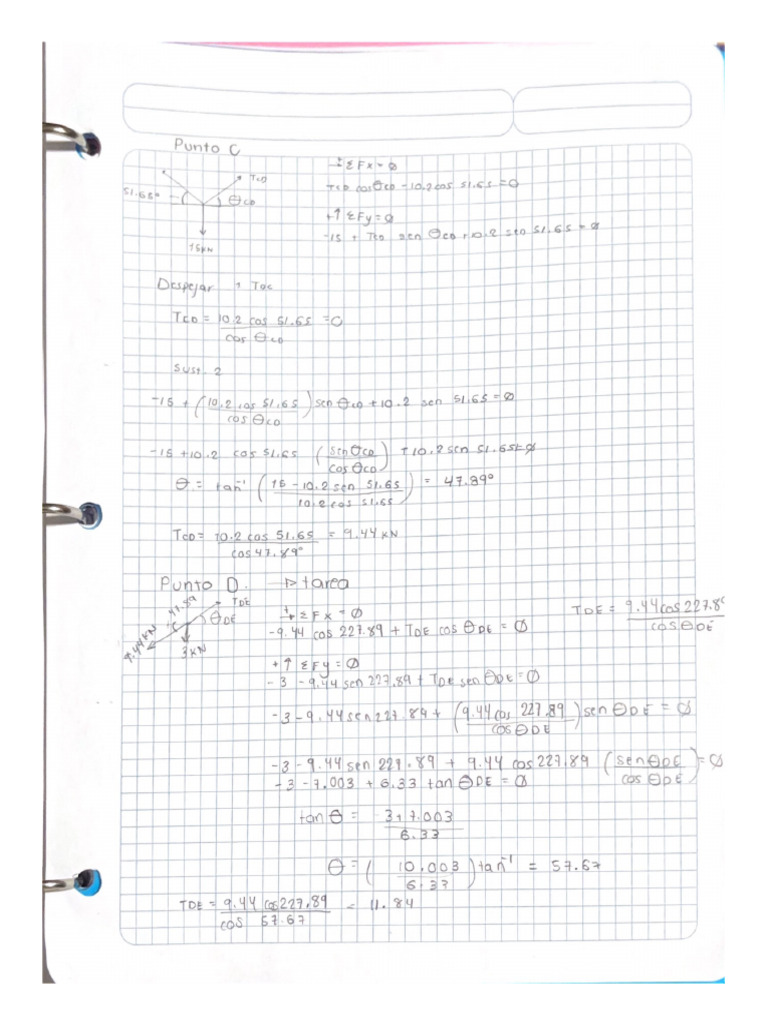 Punto C
TCD
51.65°
θCD
15kN
+→ ΣFx = 0
TCD cosθCD - 10.2 cos 51.65 = 0
+↑ ΣFy = 0
-15 + TCD sen θCD + 10.2 sen 51.65 = 0
Despejar
TCD = 10.2 cos 51.65 = 0
cos θCD
Sust. 2
-15 + (10.2 cos 51.65 / cos θCD) sen θCD + 10.2 sen 51.65 = 0
-15 + 10.2 cos 51.65 (sen θCD / cos θCD) + 10.2 sen 51.65 = 0
θ = tan⁻¹ (15 - 10.2 sen 51.65 / 10.2 cos 51.65) = 47.89°
TCD = 10.2 cos 51.65 / cos 47.89° = 9.44 kN
Punto D. ▷ tarea
47.89
TDE
θDE
9.44 kN
3 kN
+→ ΣFx = 0
-9.44 cos 227.89 + TDE cos θDE = 0
TDE = 9.44 cos 227.8
cos θDE
+↑ ΣFy = 0
-3 - 9.44 sen 227.89 + TDE sen θDE = 0
-3 - 9.44 sen 227.89 + (9.44 cos 227.89 / cos θDE) sen θDE = 0
-3 - 9.44 sen 227.89 + 9.44 cos 227.89 (sen θDE / cos θDE) = 0
-3 - 7.003 + 6.33 tan θDE = 0
tan θ = 3 + 7.003 / 6.33
θ = (10.003 / 6.33) tan⁻¹ = 57.67
TDE = 9.44 cos 227.89 / cos 57.67 = 11.84